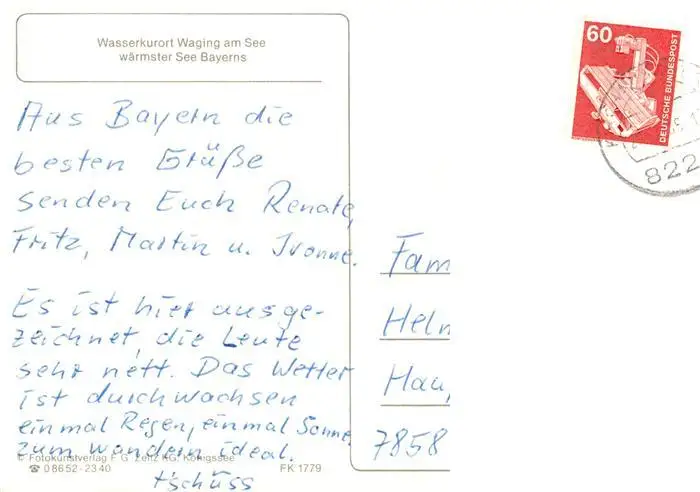 Wasserkurort Waging am See
wärmster See Bayerns
Aus Bayern die
besten Grüße
senden Euch Renate,
Fritz, Martin u. Ivonne.
Es ist hier ausge-
zeichnet, die Leute
sehr nett. Das Wetter
ist durchwachsen
einmal Regen, einmal Sonne
zum wandern ideal.
tschüss
© Fotokunstverlag F. G. Zeitz KG, Königssee
☎ 08652-2340
FK 1779
60
DEUTSCHE BUNDESPOST
822
Fam
Helm
Hau
7858